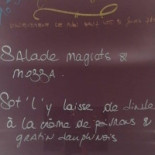 Salade magiots &
mozza.
Sot'l'y laisse de dinde
à la crème de poivrons &
gratin dauphinois